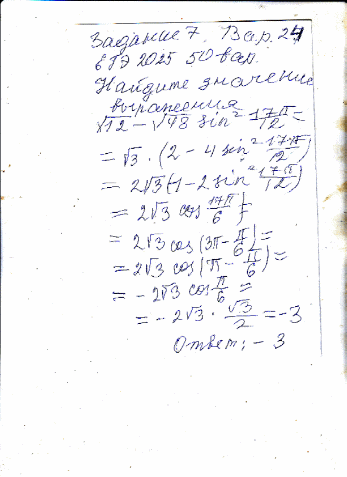 Задание 7. Вар. 24
ЕГЭ 2025 50 вар.
Найдите значение
выражения
√12 − √48 sin² 17π/12 =
= √3 · (2 − 4 sin² 17π/12)
= 2√3 (1 − 2 sin² 17π/12)
= 2√3 cos 17π/6 =
= 2√3 cos (3π − π/6) =
= 2√3 cos (π − π/6) =
= − 2√3 cos π/6 =
= − 2√3 · √3/2 = −3
Ответ: − 3